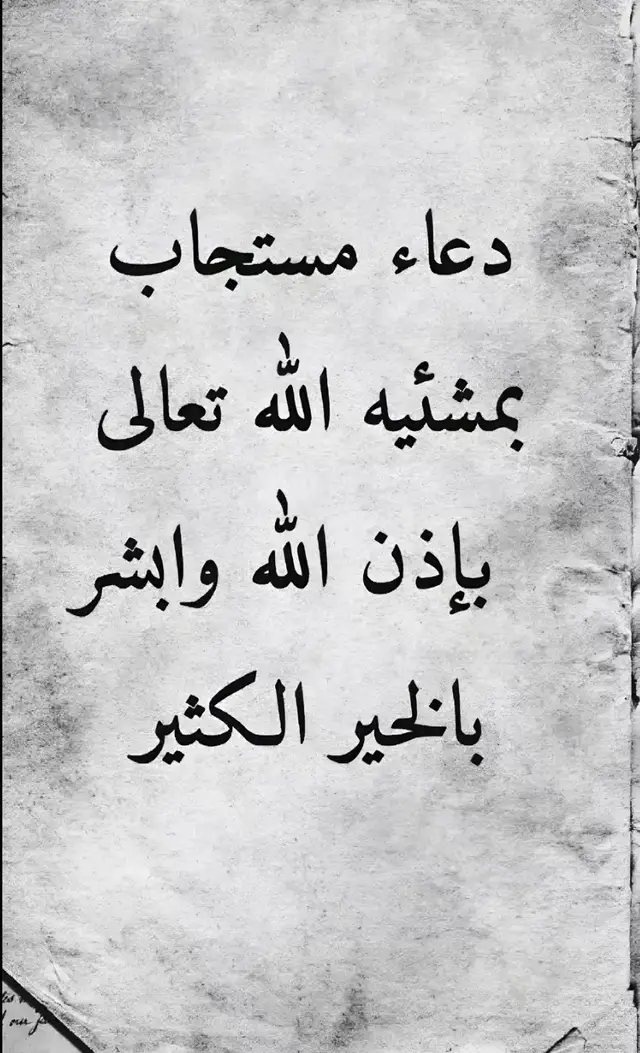 دعاء مستجاب
بمشئيه الله تعالى
بإذن الله وابشر
بالخير الكثير